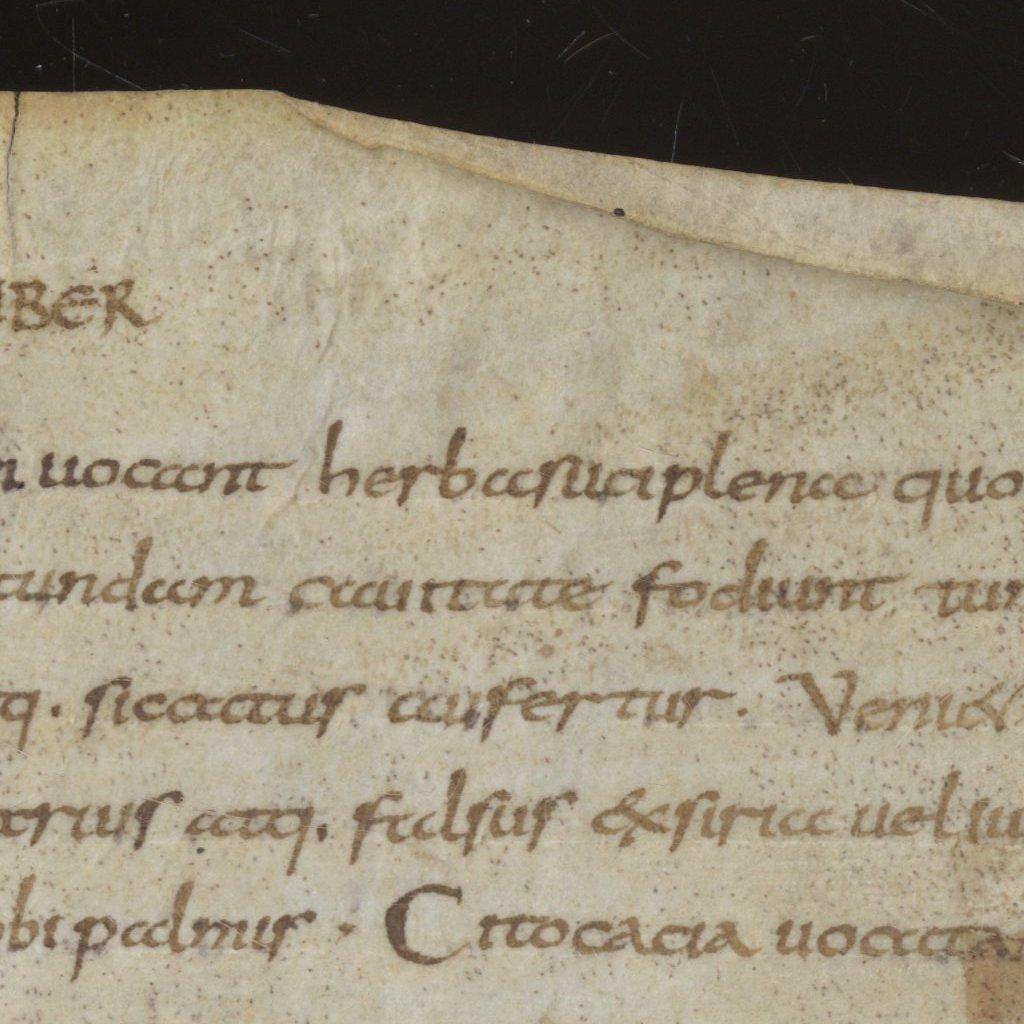 IBER
n uocant herba suci plena quo
tundam cauitate fodiunt tun
tq. siccatus aufertur. Veni&
trius atq. falsus & siria uel iu
obi palmis. Cittocacia uocata